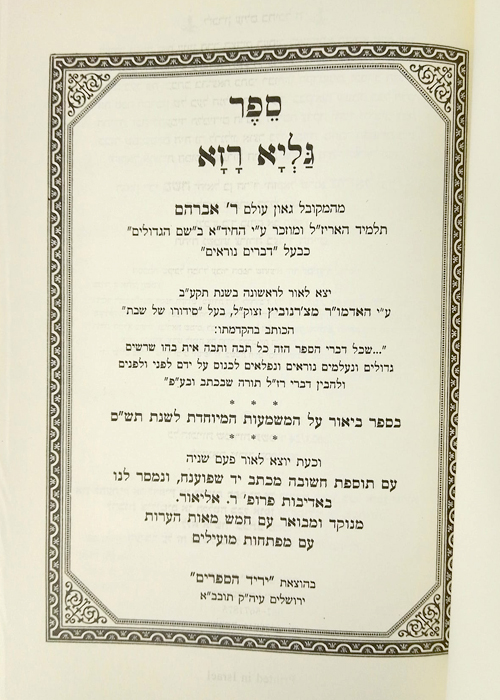 סֵפֶר
גַּלְיָא רָזָא
מהמקובל גאון עולם ר' אברהם
תלמיד האריז"ל ומוזכר ע"י החיד"א ב"שם הגדולים"
כבעל "דברים נוראים"
יצא לאור לראשונה בשנת תקע"ב
ע"י האדמו"ר מצ'רנוביץ זצוק"ל, בעל "סידורו של שבת"
הכותב בהקדמתו:
"...שכל דברי הספר הזה כל תבה ותבה אית בהו שרשים
גדולים ונעלמים נוראים ונפלאים לכנוס על ידם לפני ולפנים
ולהבין דברי רז"ל תורה שבכתב ובע"פ"
* * *
בספר ביאור על המשמעות המיוחדת לשנת תש"ס
* * *
וכעת יוצא לאור פעם שניה
עם תוספת חשובה מכתב יד שפוענח, ונמסר לנו
באדיבות פרופ' ר. אליאור.
מנוקד ומבואר עם חמש מאות הערות
עם מפתחות מועילים
בהוצאת "ידיד הספרים"
ירושלים עיה"ק תובב"א